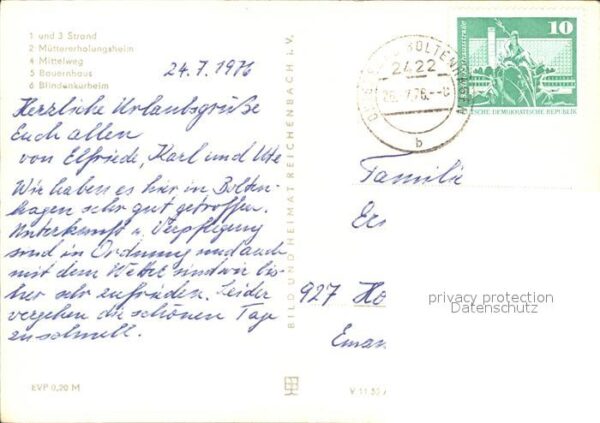 1 und 3 Strand
2 Müttererholungsheim
4 Mittelweg
5 Bauernhaus
6 Blindenkurheim
24.7.1976
Herzliche Urlaubsgrüße
Euch allen
von Elfriede, Karl und Ute
Wir haben es hier in Bolten-
hagen sehr gut getroffen.
Unterkunft u. Verpflegung
sind in Ordnung und auch
mit dem Wetter sind wir bis-
her sehr zufrieden. Leider
vergehen die schönen Tage
zu schnell.
EVP 0,20 M
BILD UND HEIMAT REICHENBACH i. V.
BOLTENHAGEN
2422
26.7.76.
b
10
DEUTSCHE DEMOKRATISCHE REPUBLIK
Familie
927 Ho
privacy protection
Datenschutz
V 11 50